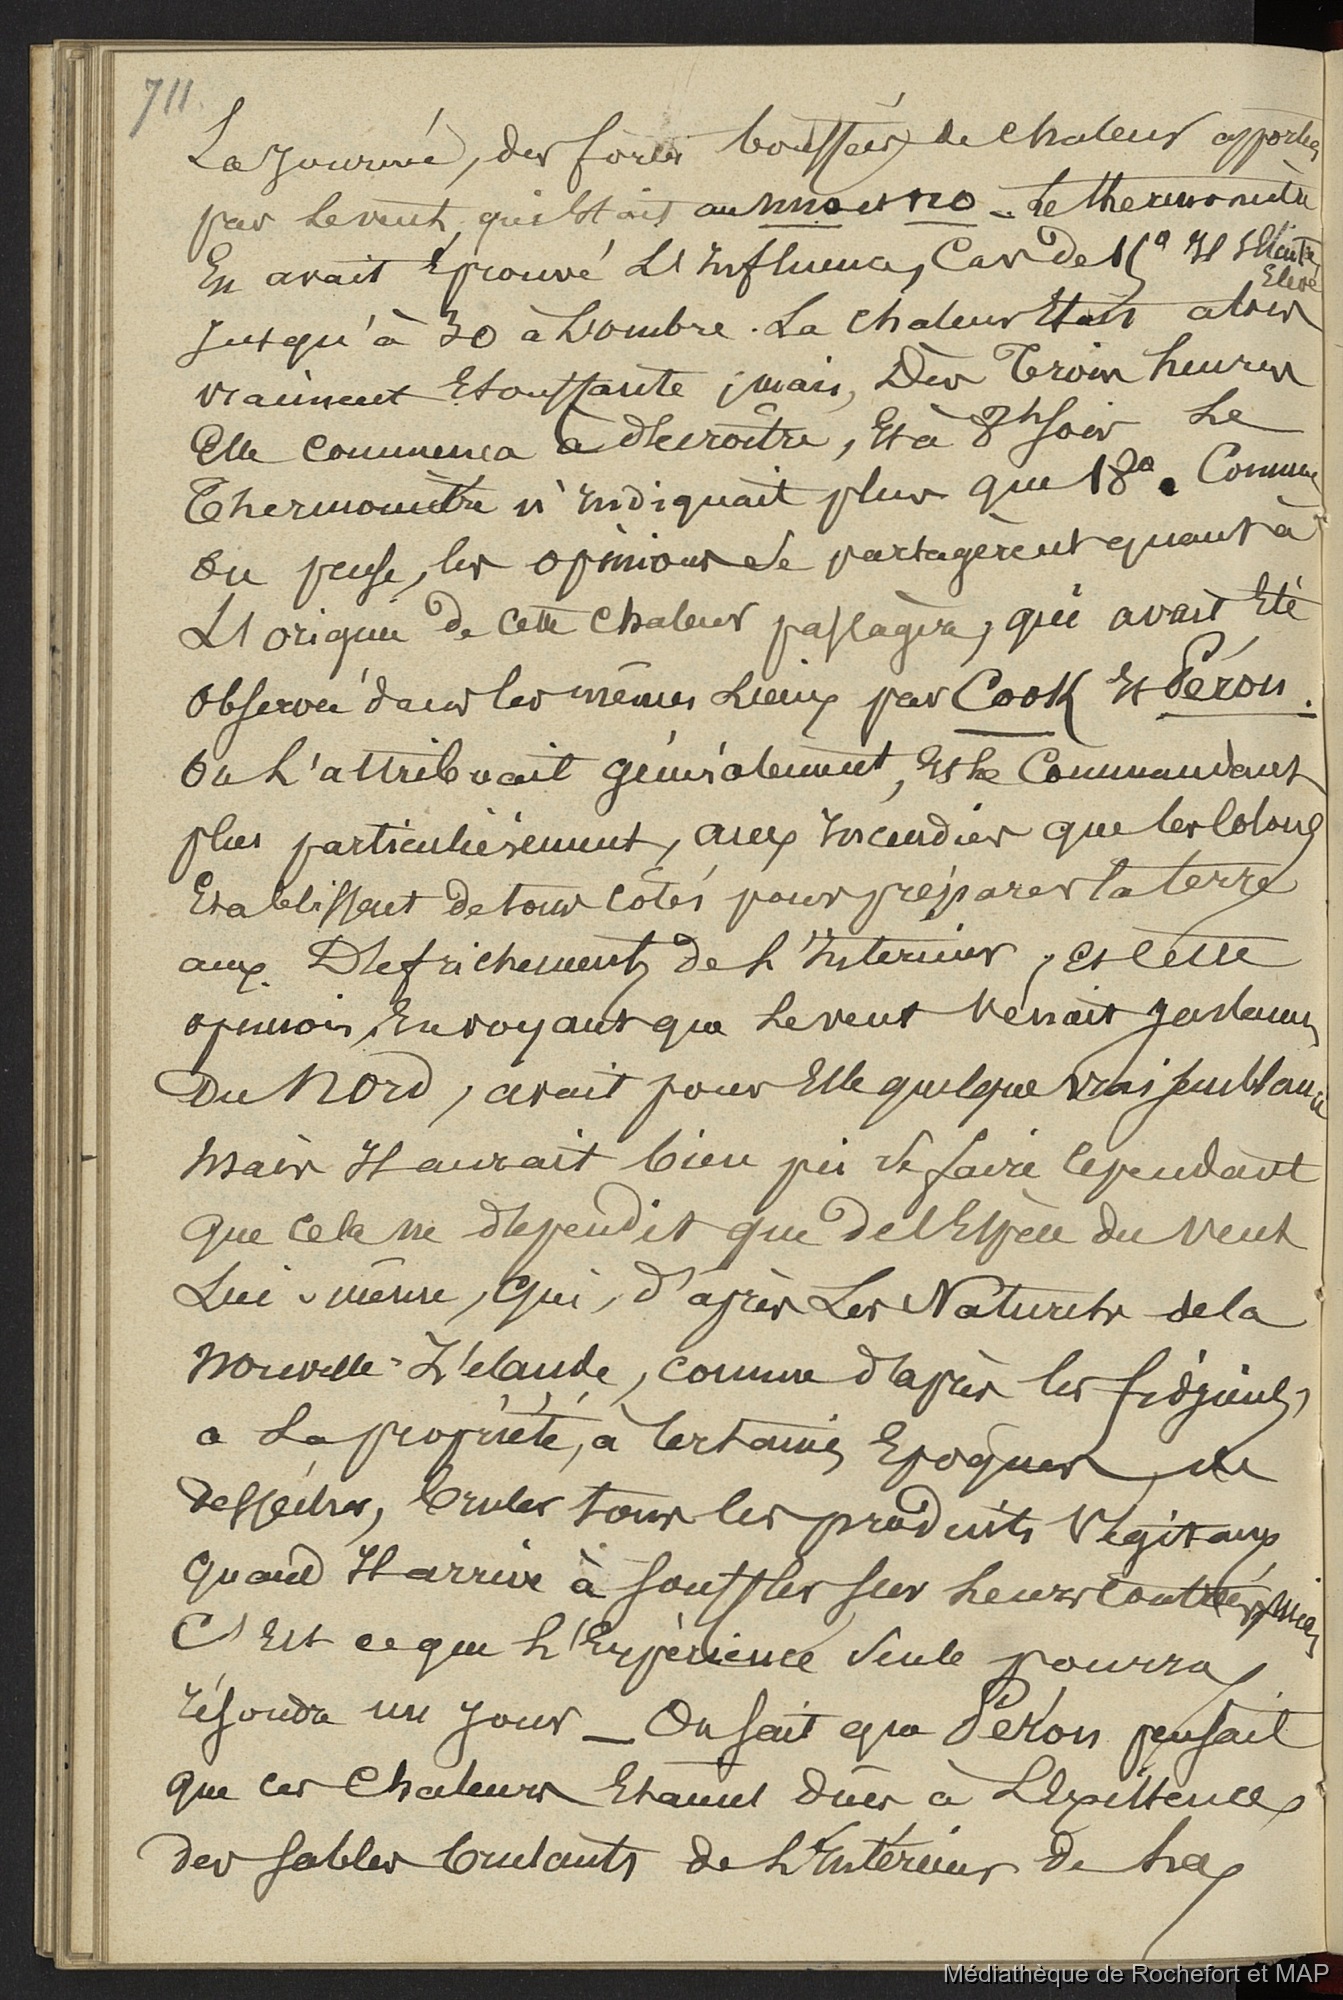 711.
La journée, des fortes bouffées de chaleur apportées
par le vent, qui était au NNO et NO _ Le thermomètre
En avait éprouvé L'Influence, Car de 15° Il s'Etait
Elevé
Jusqu'à 30 à L'ombre. La chaleur Etait alors
vraiment Etouffante ; mais, Dès Trois heures
Elle commenca à décroître, Et à 8h soir Le
Thermomètre n'Indiquait plus que 18°. Comme
On pense, les opinions se partagèrent quant à
L'origine de cette chaleur passagère, qui avait Eté
observée dans les mêmes Lieux par Cook Et Péron.
On L'attribuait généralement, Et Le Commandant
plus particulièrement, aux Incendies que les Colons
Etablissent de tous Côtés pour préparer la terre
aux Défrichements de L'Interieur, et cette
opinion, En voyant que Le vent Venait Justement
Du Nord, avait pour Elle quelque Vraisemblance
Mais Il aurait bien pu se faire Cependant
Que cela ne dépendit que de l'Espèce du Vent
Lui-même, Qui, d'après Les Naturels de la
Nouvelle-Zélande, comme d'après les fidjiens,
a La propriété, à Certaines Epoques, de
dessécher, bruler tous les produits Végétaux
Quand Il arrive à souffler sur Leurs Contrées, mais
C'Est ce que L'Expérience Seule pourra
résoudre un Jour _ On sait que Péron pensait
Que ces Chaleurs Etaient dües à L'Existence
des sables brulants de L'Intérieur de La
Médiathèque de Rochefort et MAP